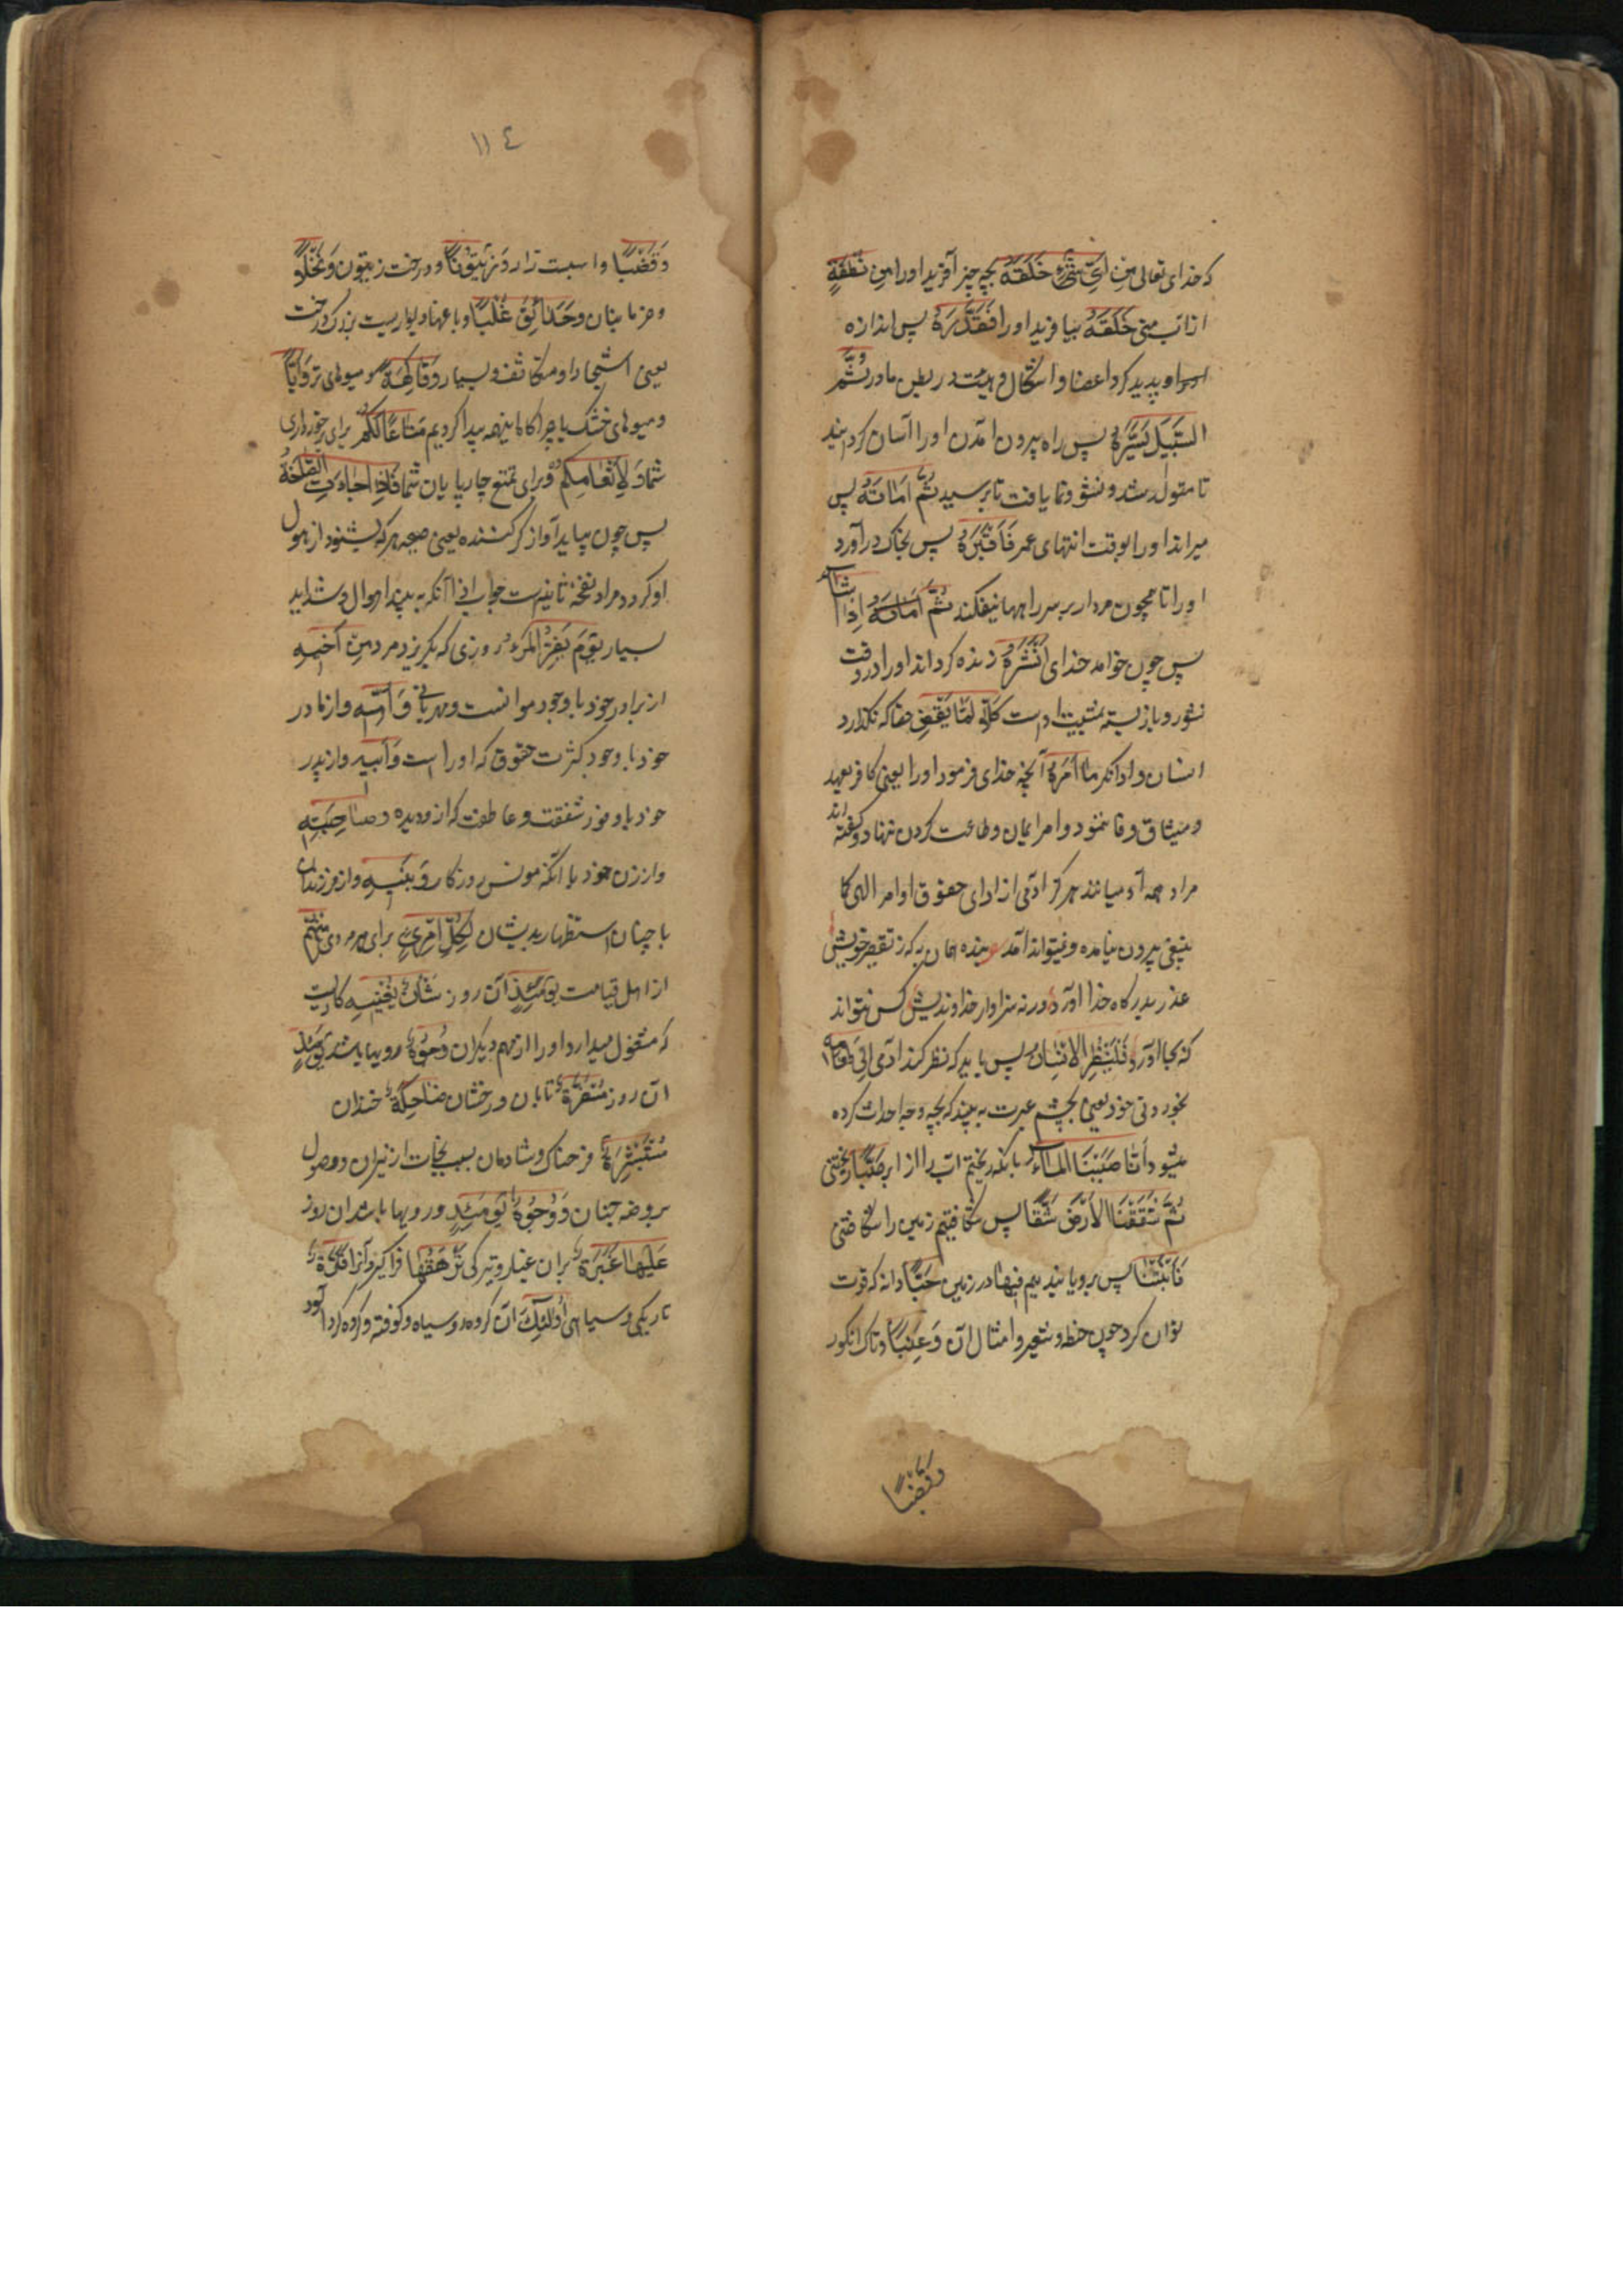 که خدای تعالی مِنْ اَیِّ شَیْءٍ خَلَقَهُ بچه چیز آفرید او را مِنْ نُطْفَةٍ
از آب منی خَلَقَهُ بیافرید او را فَقَدَّرَهُ پس اندازه
او پدید کرد اعضا و اشکال و هیئت در بطن مادر ثُمَّ
السَّبِیلَ یَسَّرَهُ پس راه بیرون آمدن او را آسان گردانید
تا متولد شد و نشو و نما یافت تا برسید ثُمَّ اَمَاتَهُ پس
میراند او را بوقت انتهای عمر فَاَقْبَرَهُ پس بخاک درآورد
او را تا همچون مردار بر سر راهها نیفکنند ثُمَّ اَمَاتَهُ اِذَا شَاءَ
پس چون خواهد خدای اَنْشَرَهُ زنده گرداند او را و وقت
نشور و باز بسته بمشیت اوست کَلَّا لَمَّا یَقْضِ حقا که نگذارد
انسان و ادا نکرد مَا اَمَرَهُ آنچه خدای فرمود او را یعنی کافر بعهد
و میثاق وفا ننمود و امر ایمان و طاعت کردن ننهاد و گفته اند
مراد همه آدمیانند هرگز آدمی از ادای حقوق اوامر الهی کما
ینبغی بیرون نیامده و نمیتواند آمد بنده همان به که ز تقصیر خویش
عذر بدرگاه خدا آورد ورنه سزاوار خداوندیش کس نتواند
که بجا آورد فَلْیَنْظُرِ الْاِنْسَانُ پس باید که نظر کند آدمی اِلَی طَعَامِهِ
بخوردنی خود یعنی بچشم عبرت به بیند که بچه وجه احداث کرده
میشود اَنَّا صَبَبْنَا الْمَاءَ بانکه ریختیم آب را از ابر صَبًّا ریختنی
ثُمَّ شَقَقْنَا الْاَرْضَ شَقًّا پس شکافتیم زمین را شکافتنی
فَاَنْبَتْنَا پس برویانیدیم فِیهَا در زمین حَبًّا دانه که قوت
توان کرد چون حنطه و شعیر و امثال آن وَعِنَبًا و تاک انگور
وَقَضْبًا
۱۱٤
وَقَضْبًا و اسبست زار وَزَیْتُونًا و درخت زیتون وَنَخْلًا
و خرمابنان وَحَدَائِقَ غُلْبًا و باغها و دیواربست بزرگ درخت
یعنی اشجار او متکاثف و بسیار وَفَاکِهَةً و میوهای تر وَاَبًّا
و میوهای خشک یا چراگاها اینهمه پیدا کردیم مَتَاعًا لَکُمْ برای برخورداری
شما وَلِاَنْعَامِکُمْ و برای تمتع چارپایان شما فَاِذَا جَاءَتِ الصَّاخَّةُ
پس چون بیاید آواز کر کننده یعنی صیحه هر که بشنود از هول
او کر گردد مراد نفخه ثانیه است جواب اذا آنکه به بیند اهوال و شداید
بسیار یَوْمَ یَفِرُّ الْمَرْءُ روزی که بگریزد مرد مِنْ اَخِیهِ
از برادر خود با وجود موانست و مهربانی وَاُمِّهِ و از مادر
خود با وجود کثرت حقوق که او راست وَاَبِیهِ و از پدر
خود با وفور شفقت و عاطفت که ازو دیده وَصَاحِبَتِهِ
و از زن خود با آنکه مونس روزگار وَبَنِیهِ و از فرزندان
با چنان استظهار بدیشان لِکُلِّ امْرِئٍ برای هر مردی مِنْهُمْ
از اهل قیامت یَوْمَئِذٍ آن روز شَاْنٌ یُغْنِیهِ کاریست
که مشغول میدارد او را از مهم دیگران وُجُوهٌ رویها باشد یَوْمَئِذٍ
آن روز مُسْفِرَةٌ تابان و رخشان ضَاحِکَةٌ خندان
مُسْتَبْشِرَةٌ فرحناک و شادمان بسبب نجات از نیران و وصول
بروضه جنان وَوُجُوهٌ یَوْمَئِذٍ و رویها باشد آن روز
عَلَیْهَا غَبَرَةٌ بران غبار و تیرگی تَرْهَقُهَا فراگیرد آنرا قَتَرَةٌ
تاریکی و سیاهی اُولٰئِکَ آن گروه رو سیاه و کوفته و گرد آلود